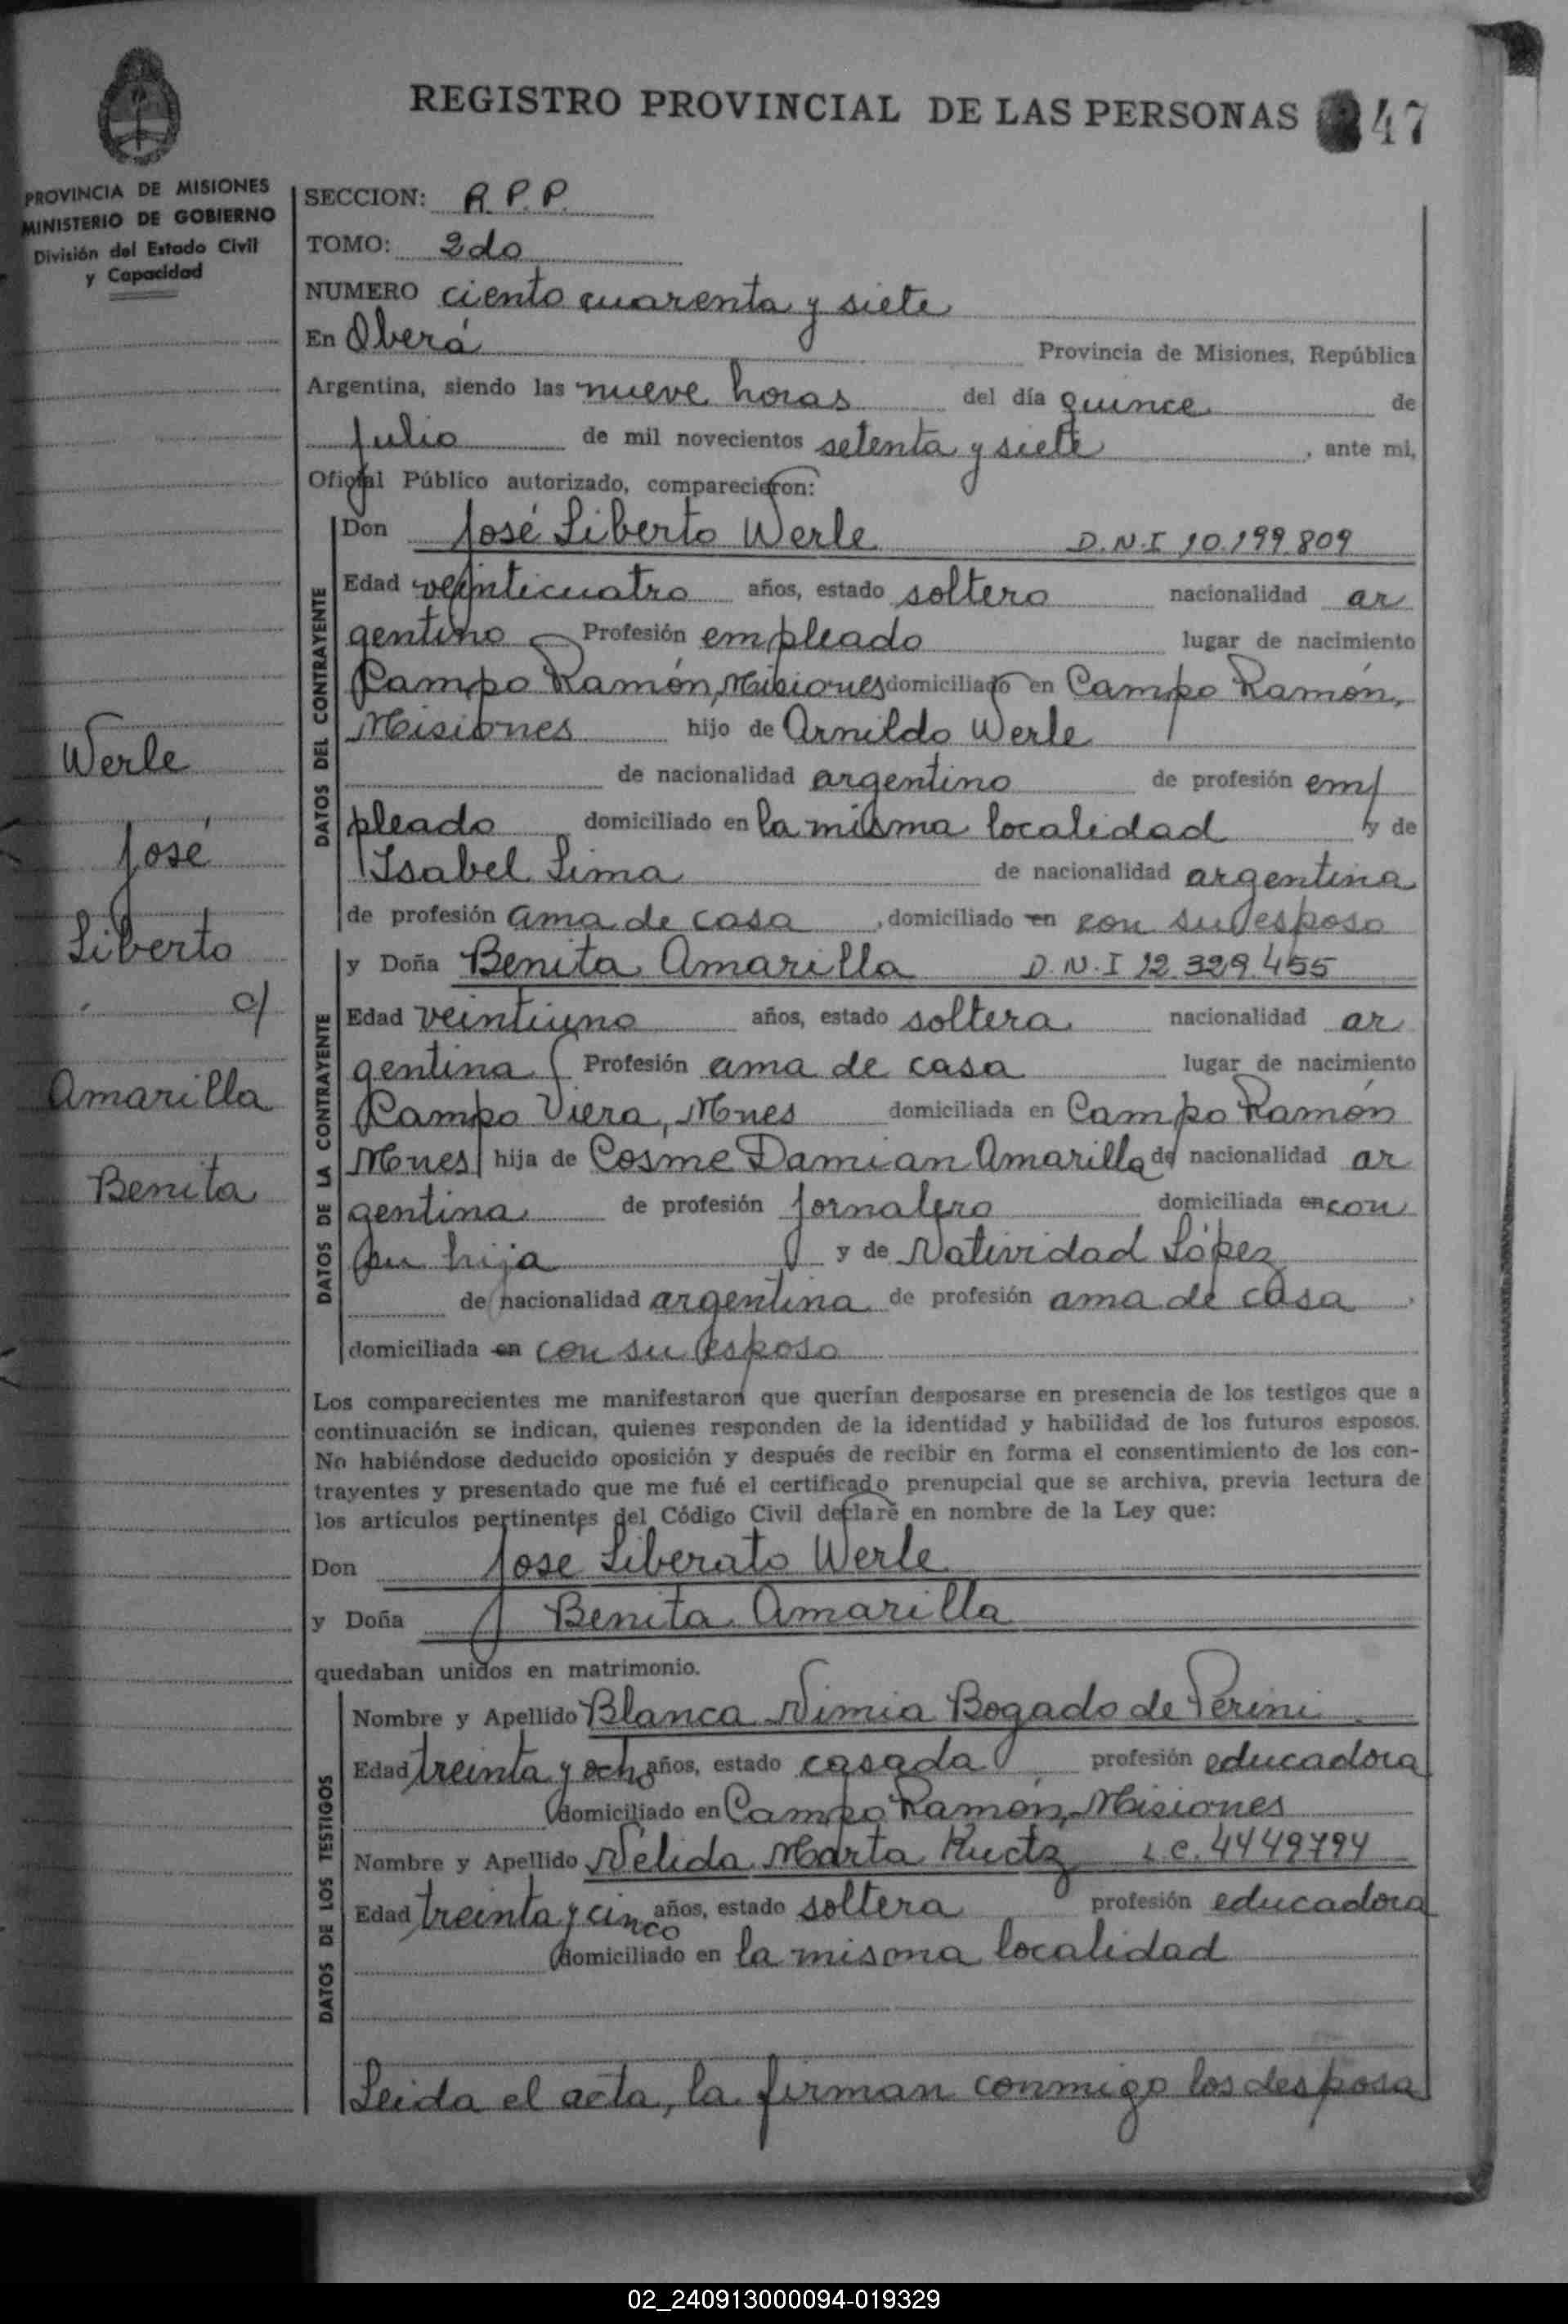 REGISTRO PROVINCIAL DE LAS PERSONAS 47
PROVINCIA DE MISIONES
MINISTERIO DE GOBIERNO
División del Estado Civil
y Capacidad
Werle
José
Liberto
c/
Amarilla
Benita
SECCION: R. P. P.
TOMO: 2do
NUMERO ciento cuarenta y siete
En Oberá Provincia de Misiones, República
Argentina, siendo las nueve horas del día quince de
julio de mil novecientos setenta y siete, ante mi,
Oficial Público autorizado, comparecieron:
DATOS DEL CONTRAYENTE
Don José Liberto Werle D.N.I 10.199.809
Edad veinticuatro años, estado soltero nacionalidad ar
gentino Profesión empleado lugar de nacimiento
Campo Ramón, Misiones domiciliado en Campo Ramón,
Misiones hijo de Arnildo Werle
de nacionalidad argentino de profesión em
pleado domiciliado en la misma localidad y de
Isabel Lima de nacionalidad argentina
de profesión ama de casa, domiciliado en con su esposo
DATOS DE LA CONTRAYENTE
y Doña Benita Amarilla D.N.I 12.329.455
Edad veintiuno años, estado soltera nacionalidad ar
gentina Profesión ama de casa lugar de nacimiento
Campo Viera, Mnes domiciliada en Campo Ramón
Mnes hija de Cosme Damian Amarilla de nacionalidad ar
gentina de profesión jornalero domiciliada en con
su hija y de Natividad López
de nacionalidad argentina de profesión ama de casa
domiciliada en con su esposo
Los comparecientes me manifestaron que querían desposarse en presencia de los testigos que a
continuación se indican, quienes responden de la identidad y habilidad de los futuros esposos.
No habiéndose deducido oposición y después de recibir en forma el consentimiento de los con-
trayentes y presentado que me fué el certificado prenupcial que se archiva, previa lectura de
los artículos pertinentes del Código Civil declaré en nombre de la Ley que:
Don José Liberato Werle
y Doña Benita Amarilla
quedaban unidos en matrimonio.
DATOS DE LOS TESTIGOS
Nombre y Apellido Blanca Nimia Bogado de Perini
Edad treinta y ocho años, estado casada profesión educadora
domiciliado en Campo Ramón, Misiones
Nombre y Apellido Nélida Marta L.C. 4449794
Edad treinta y cinco años, estado soltera profesión educadora
domiciliado en la misma localidad
Leida el acta, la firman conmigo los desposa
02_240913000094-019329